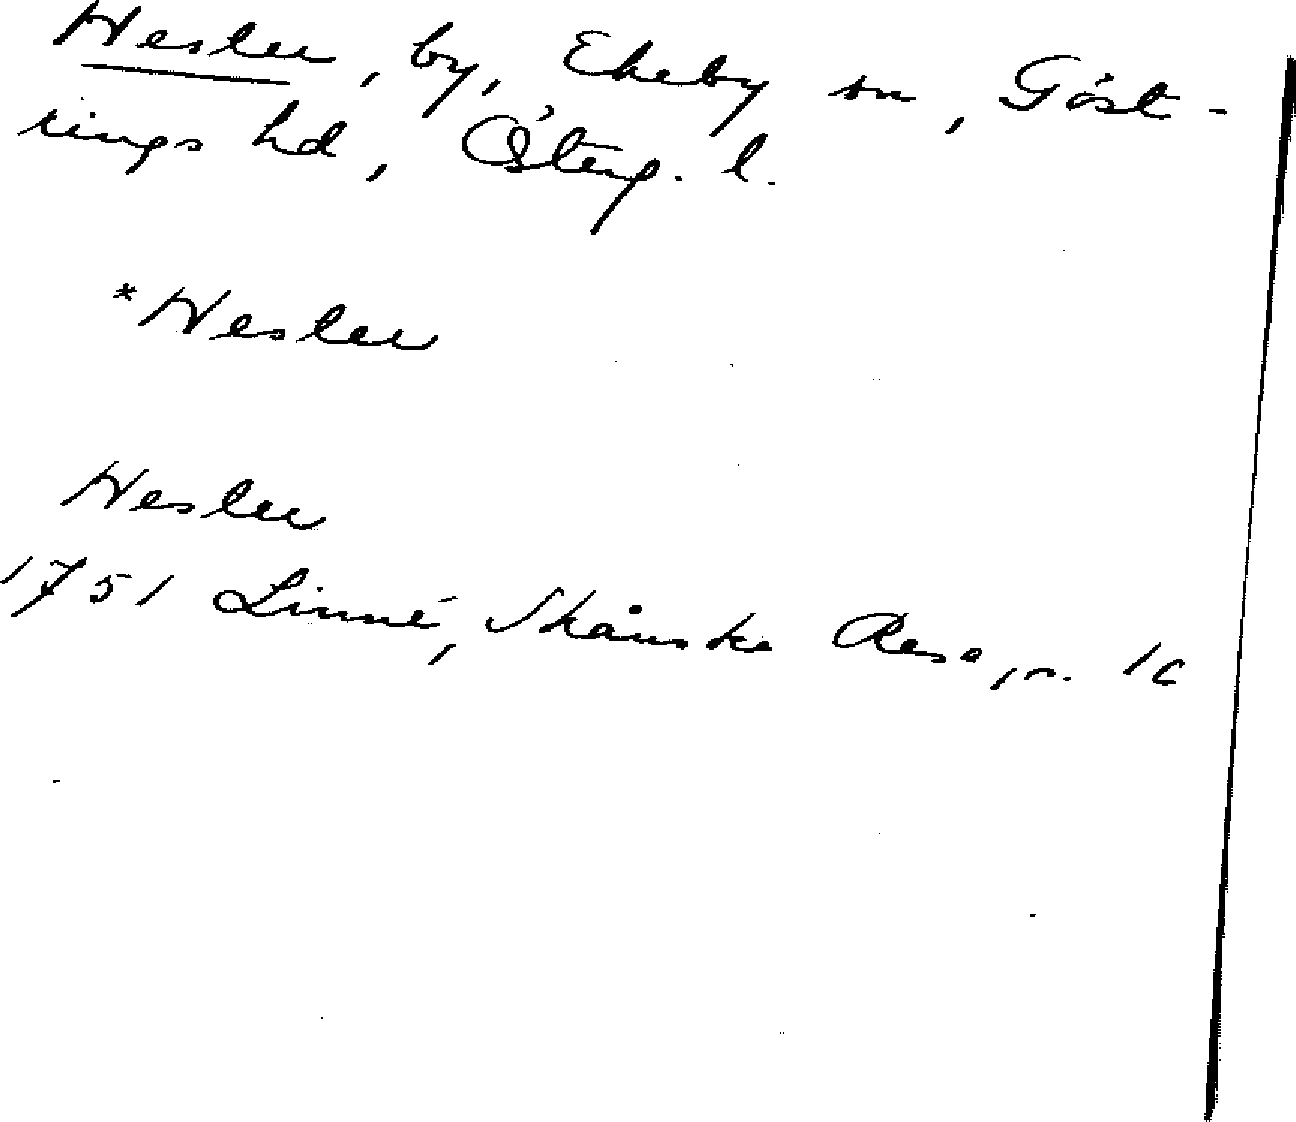 Neslen, by, Ekeby sn, Göst-
rings hd, Österg. l.
*Neslen
Neslen
1751 Linné, Skånska Resa,